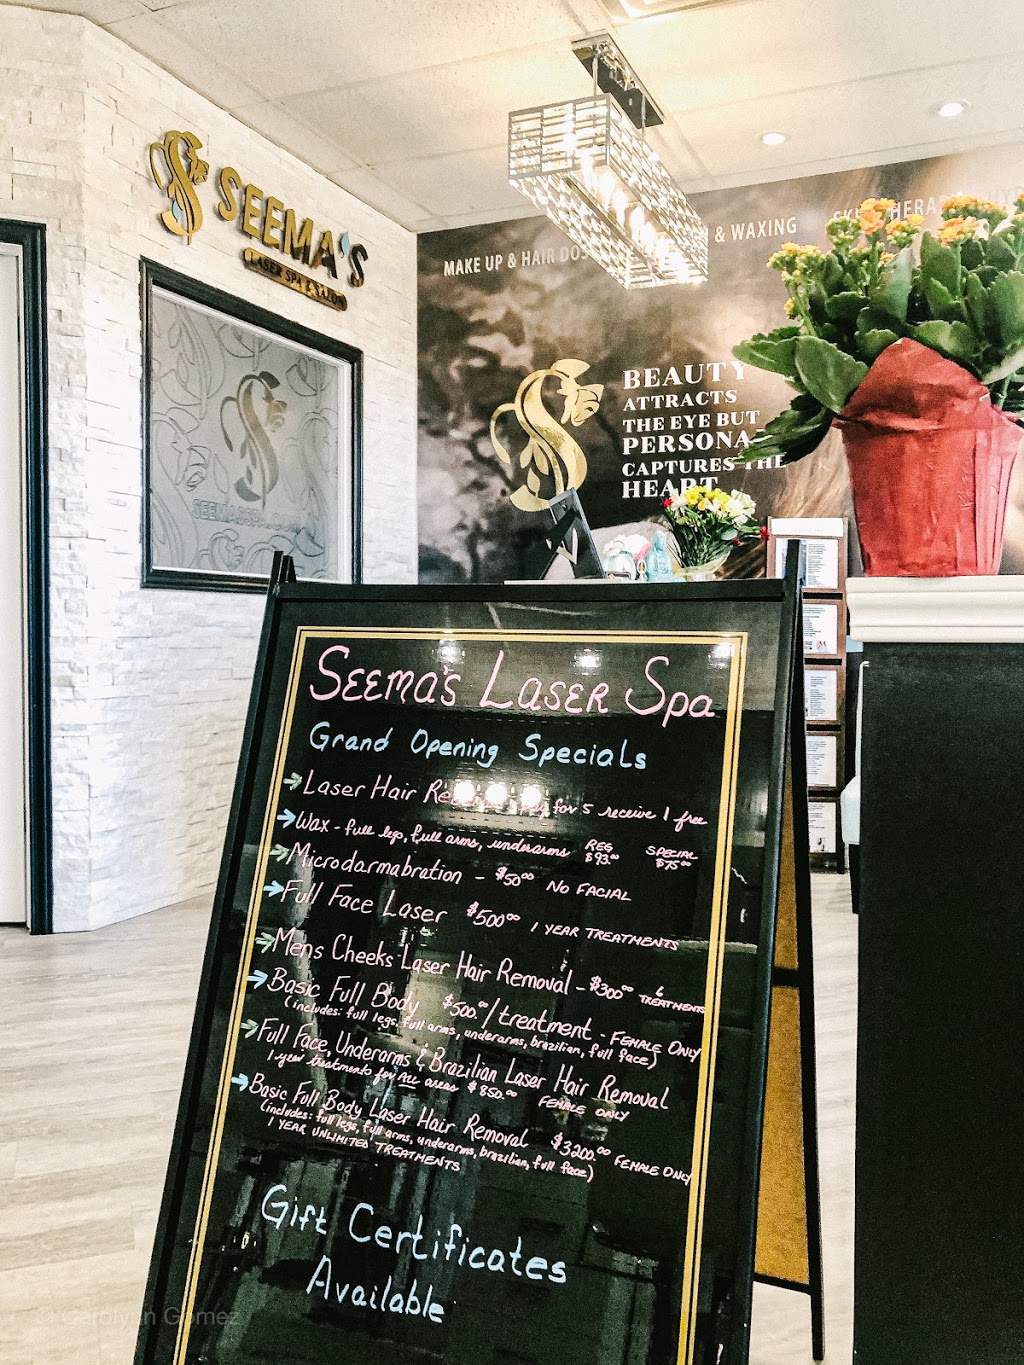 SEEMA'S
LASER SPA & SALON
MAKE UP & HAIR DOS
& WAXING
BEAUTY
ATTRACTS
THE EYE BUT
CAPTURES THE
HEART
SEEMA'S LASER Spa
Grand Opening Specials
Laser Hair for 5 receive 1 free
Wax - full legs, full arms, underarms REG $93.00 SPECIAL $75.00
Microdarmabration - $50.00 NO FACIAL
Full Face Laser $500.00 1 YEAR TREATMENTS
Mens Cheeks Laser Hair Removal - $300.00 6 TREATMENTS
Basic Full Body $500.00/treatment - FEMALE ONLY
(includes: full legs, full arms, underarms, brazilian, full face)
Full Face, Underarms & Brazilian Laser Hair Removal
1 year treatments for ALL areas $850.00 FEMALE ONLY
Basic Full Body Laser Hair Removal $3200.00 FEMALE ONLY
(includes: full legs, full arms, underarms, brazilian, full face)
1 YEAR UNLIMITED TREATMENTS
Gift Certificates
Available
Gomez